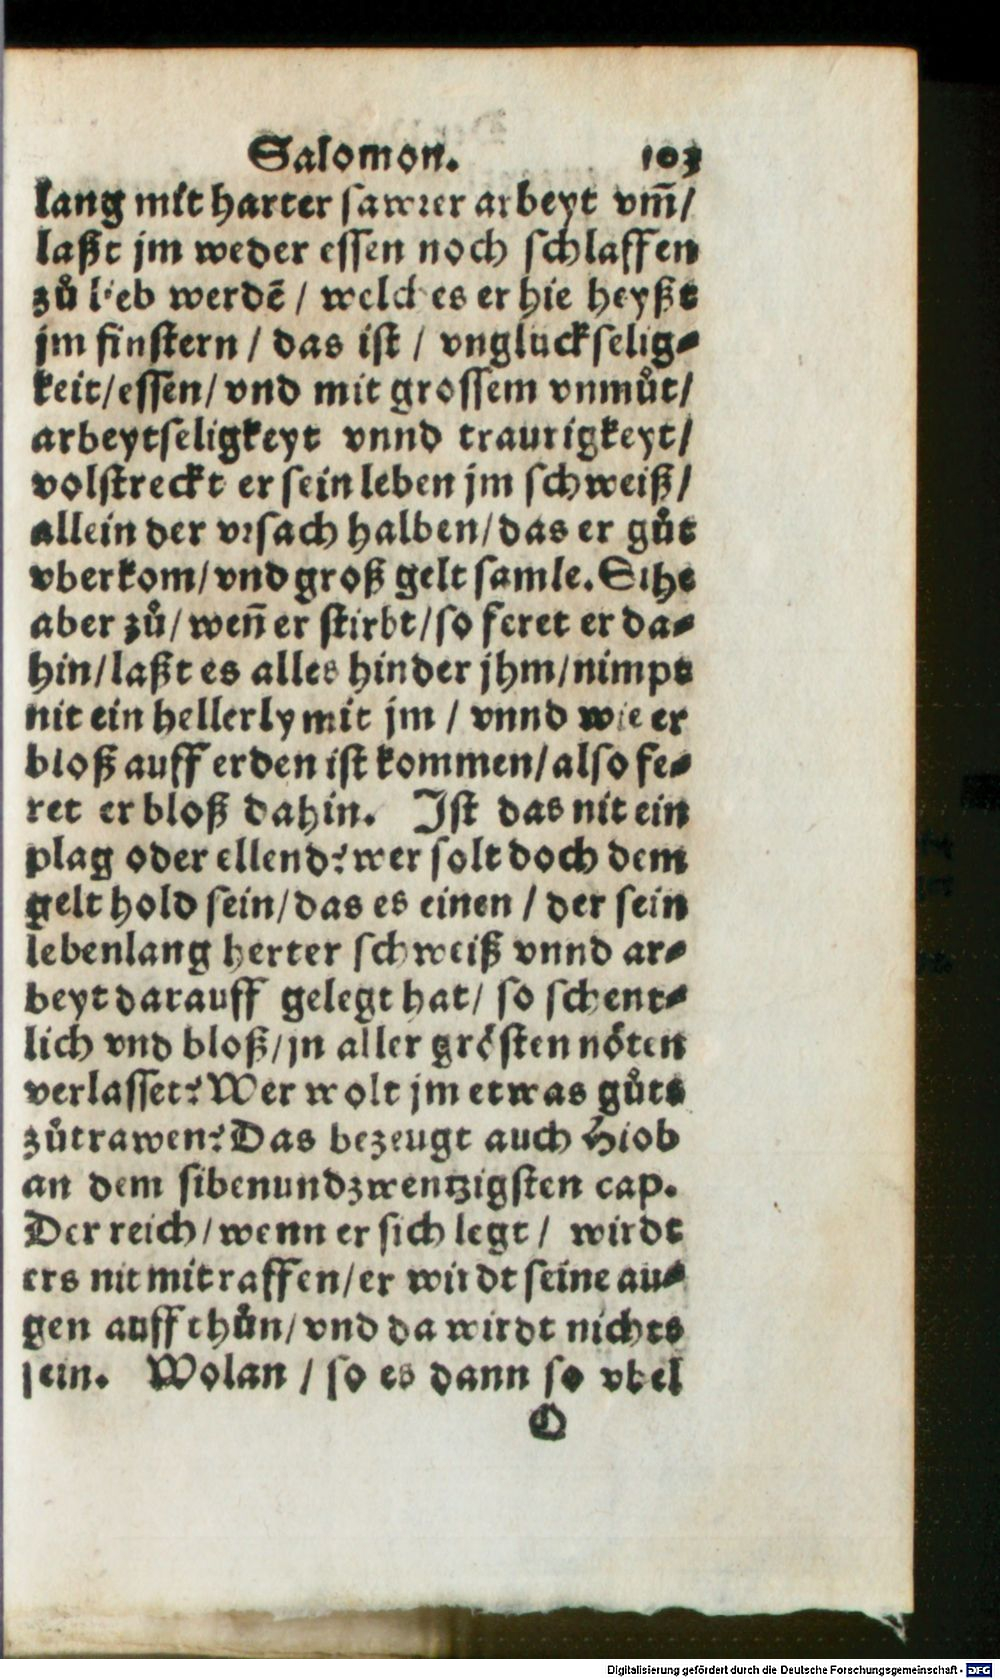 Salomon. 103
lang mit harter sawrer arbeyt vm̃/
laßt jm weder essen noch schlaffen
zů lieb werdē / welches er hie heyßt
jm finstern / das ist / vngluckselig⸗
keit/essen/vnd mit grossem vnmůt/
arbeytseligkeyt vnnd traurigkeyt/
volstreckt er sein leben jm schweiß/
allein der vrsach halben/das er gůt
vberkom/vnd groß gelt samle. Sihe
aber zů/weñ er stirbt/so feret er da⸗
hin/laßt es alles hinder jhm/nimpt
nit ein hellerly mit jm / vnnd wie er
bloß auff erden ist kommen/also fe⸗
ret er bloß dahin. Ist das nit ein
plag oder ellend? wer solt doch dem
gelt hold sein/das es einen / der sein
lebenlang herter schweiß vnnd ar⸗
beyt darauff gelegt hat/ so schent⸗
lich vnd bloß/jn aller grösten nöten
verlasset? Wer wolt jm etwas gůts
zůtrawen? Das bezeugt auch Hiob
an dem sibenundzwentzigsten cap.
Der reich/wenn er sich legt / wirdt
ers nit mit raffen/er wirdt seine au⸗
gen auff thůn/vnd da wirdt nichts
sein. Wolan / so es dann so vbel
O
Digitalisierung gefördert durch die Deutsche Forschungsgemeinschaft - DFG